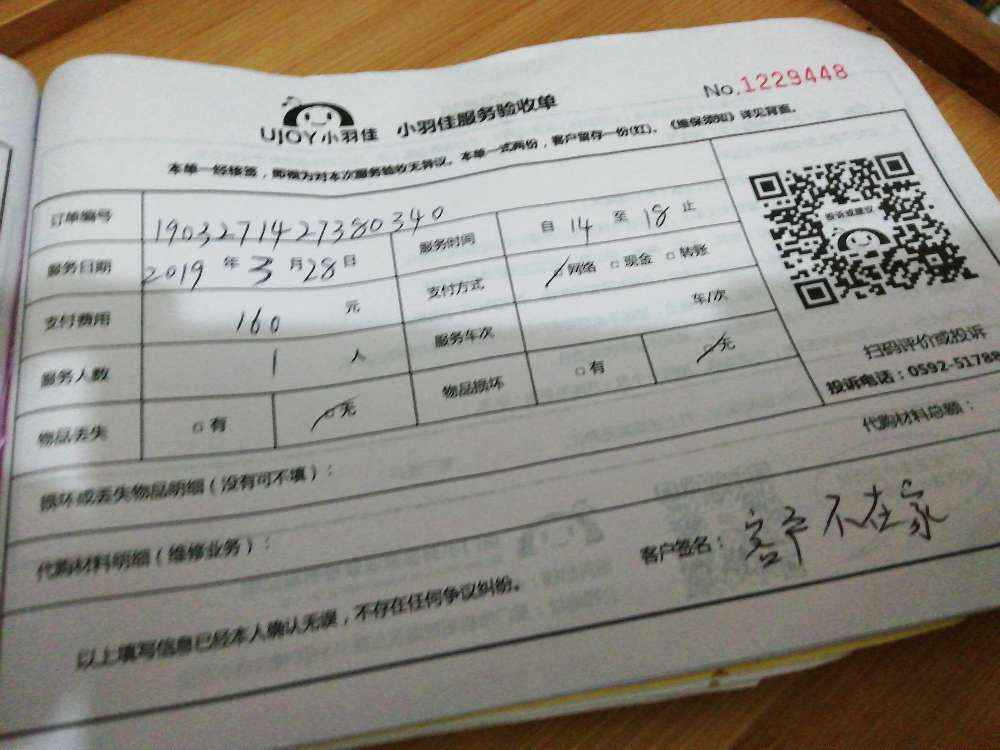 No.1229448
UJOY小羽佳 小羽佳服务验收单
本单一经签签，即视为对本次服务验收无异议。本单一式两份，客户留存一份(红)。《维保须知》详见背面。
订单编号 1903271427380340 服务时间 自 14 至 18 止
服务日期 2019 年 3 月 28 日 支付方式 网络 □ 现金 □ 转账
支付费用 160 元 服务车次 车/次
服务人数 1 人 物品损坏 □ 有 □ 无
物品丢失 □ 有 □ 无
投诉或建议
扫码评价或投诉
投诉电话：0592-51788
损坏或丢失物品明细（没有可不填）：
代购材料总额：
代购材料明细（维修业务）：
客户签名：客户不在家
以上填写信息已经本人确认无误，不存在任何争议纠纷。